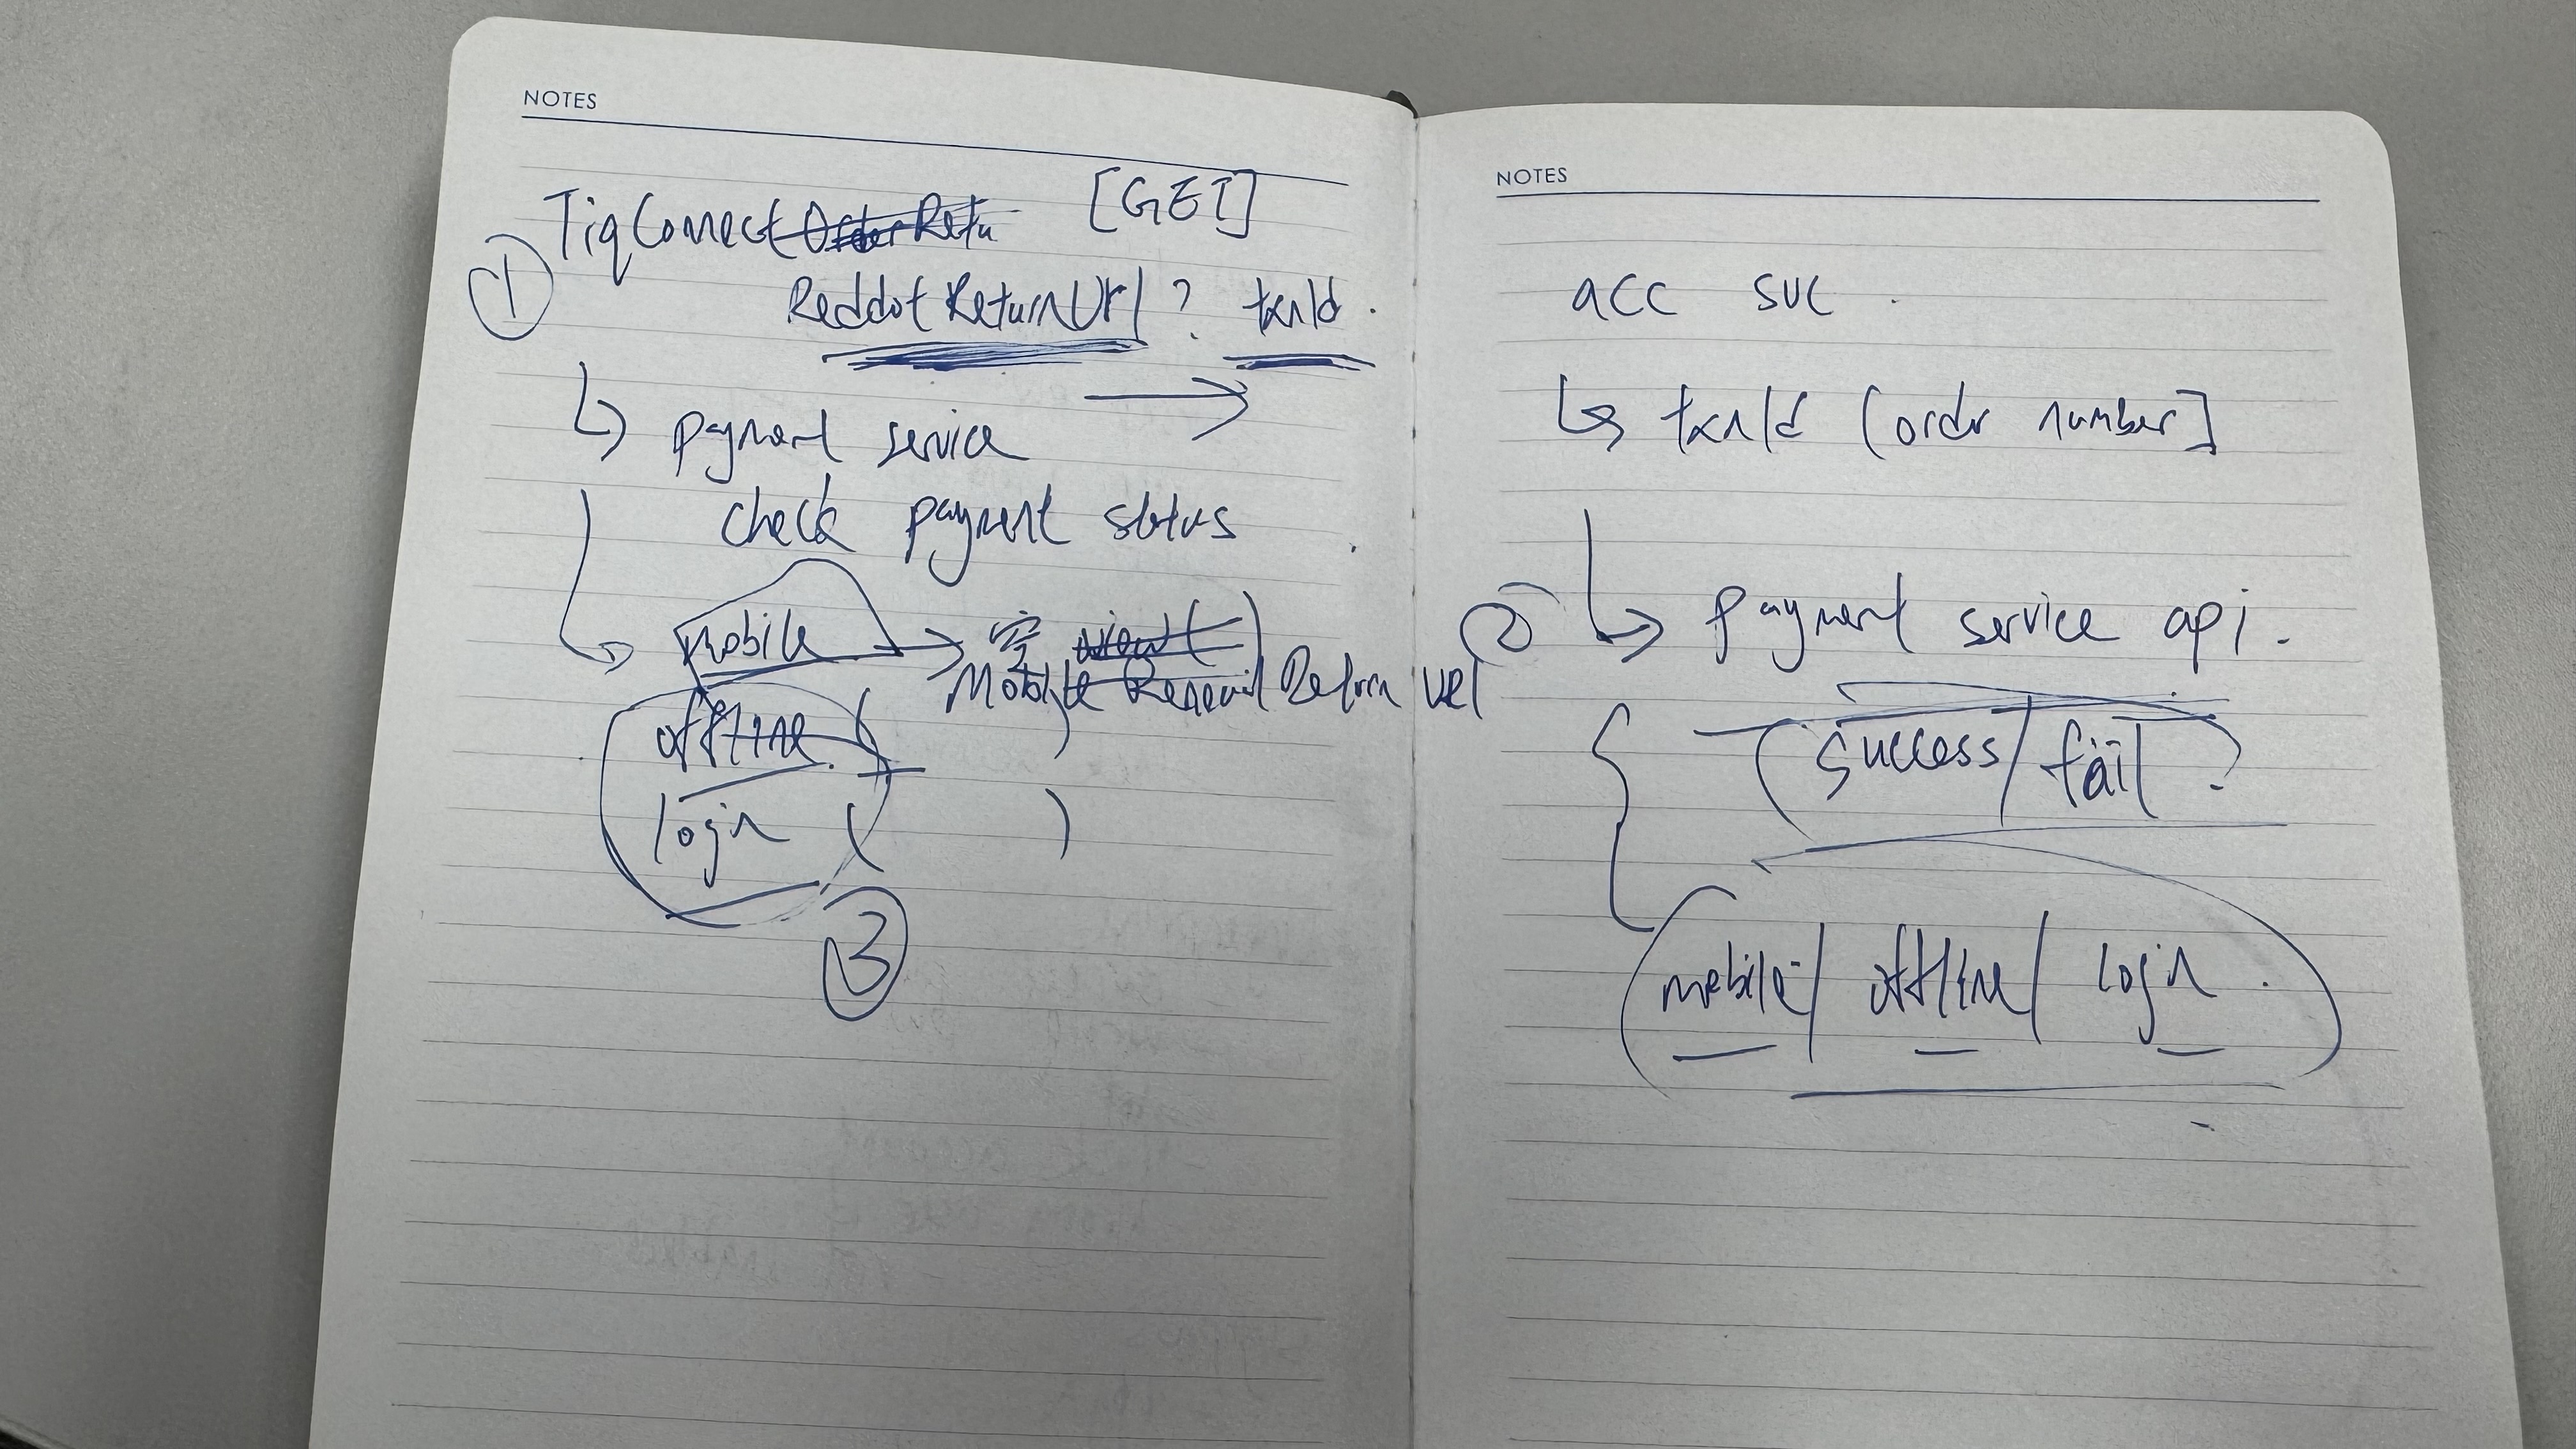 NOTES
TiqConnect OrderRetu [GET]
①
ReddotReturnUrl ? txnId .
payment service
check payment status
mobile 空 view( )
Mobile Renewal Return Url
offline ( )
login ( )
③
NOTES
acc svc .
txnId (order number]
② payment service api .
(success / fail)
mobile / offline / login .